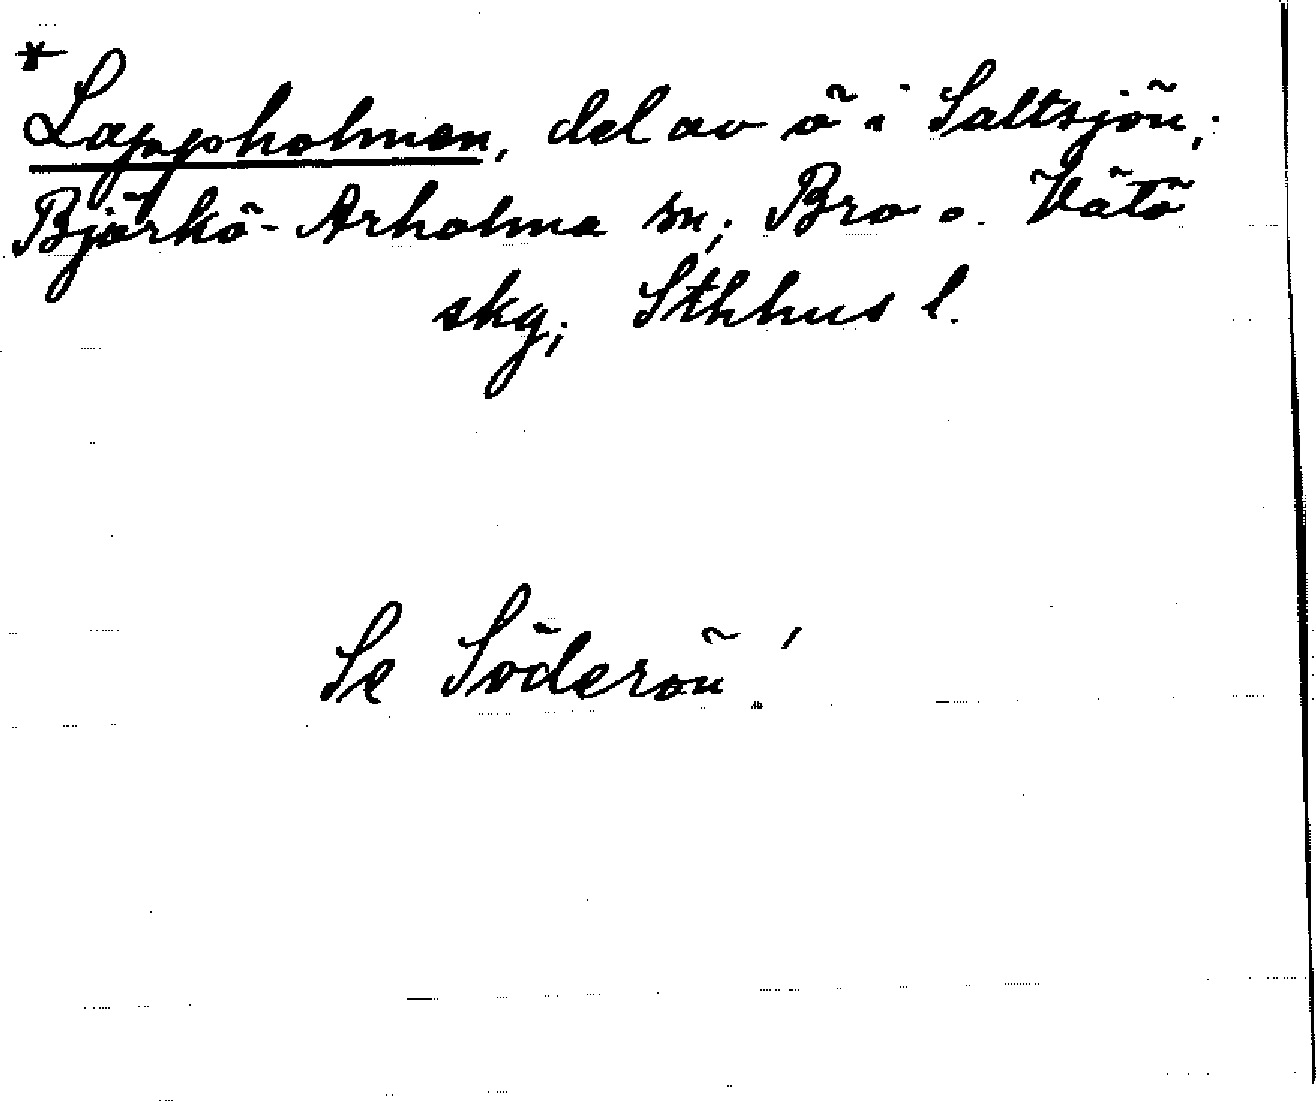 *
Lappholmen, del av ö i Saltsjön;
Björkö-Arholma sn; Bro o. Vätö
skg; Sthhus l.
Se Söderön!